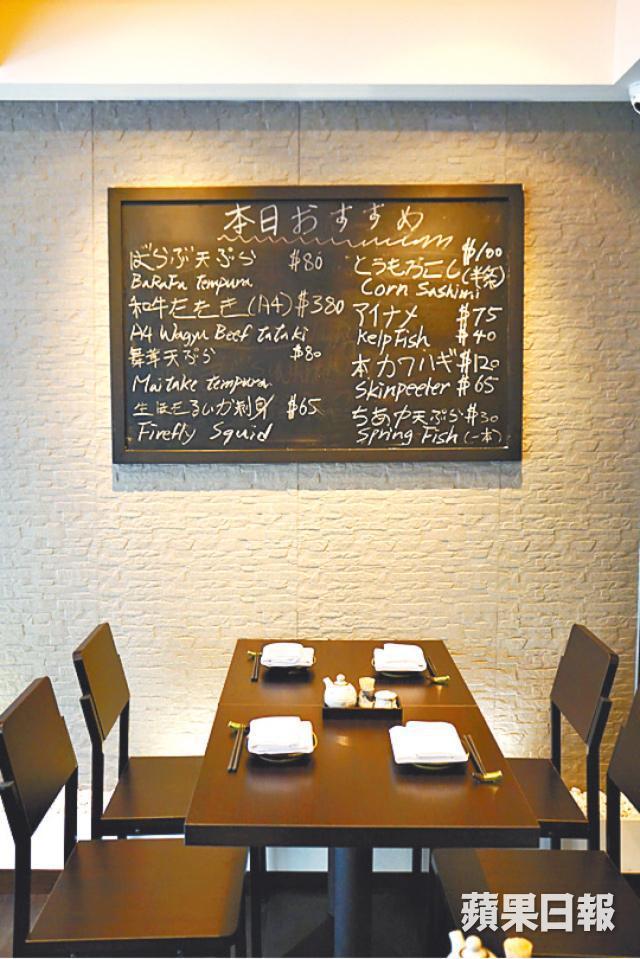 本日おすすめ
ばらぶ天ぷら $80
BaRaFu tempura
和牛たたき(A4) $380
A4 Wagyu Beef tataki
舞茸天ぷら $80
Maitake tempura
生ほたるいか刺身 $65
Firefly Squid
$100
とうもろこし(半本)
Corn Sashimi
アイナメ $75
Kelp Fish $40
本カワハギ $120
Skinpeeler $65
ちあゆ天ぷら $30
Spring Fish (一本)
蘋果日報